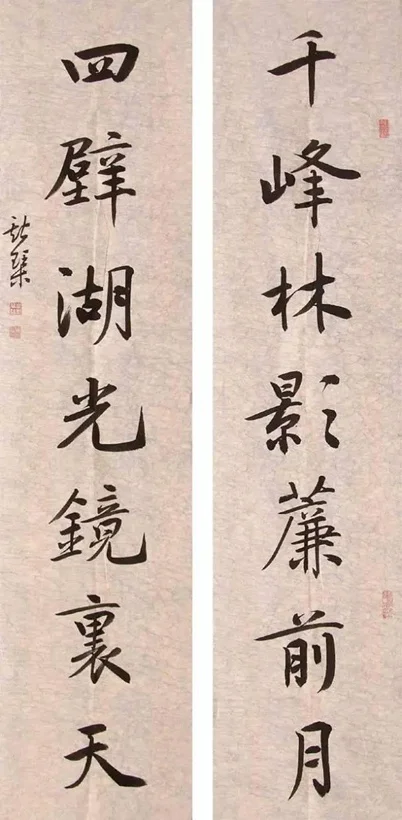 千峰林影簾前月
四壁湖光鏡裏天